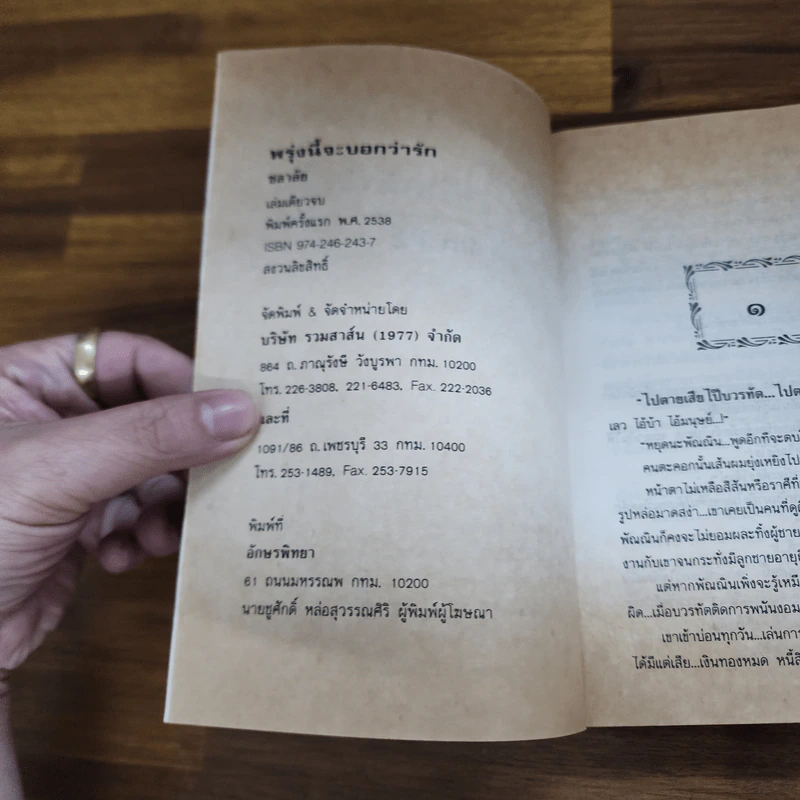 พรุ่งนี้จะบอกว่ารัก
ชลาลัย
เล่มเดียวจบ
พิมพ์ครั้งแรก พ.ศ. 2538
ISBN 974-246-243-7
สงวนลิขสิทธิ์
จัดพิมพ์ & จัดจำหน่ายโดย
บริษัท รวมสาส์น (1977) จำกัด
864 ถ.ภาณุรังษี วังบูรพา กทม. 10200
โทร. 226-3808, 221-6483, Fax. 222-2036
และที่
1091/86 ถ.เพชรบุรี 33 กทม. 10400
โทร. 253-1489, Fax. 253-7915
พิมพ์ที่
อักษรพิทยา
61 ถนนมหรรณพ กทม. 10200
นายชูศักดิ์ หล่อสุวรรณศิริ ผู้พิมพ์ผู้โฆษณา
๑
"ไปตายเสียไป๊บวรทัต...ไปต
เลว ไอ้บ้า ไอ้มนุษย์...!"
"หยุดนะพัณณิน...พูดอีกทีจะตบใ
คนตะคอกนั้นเส้นผมยุ่งเหยิงไป
หน้าตาไม่เหลือสีสันหรือราศีที่
รูปหล่อมาดสง่า...เขาเคยเป็นคนที่ดูดี
พัณณินก็คงจะไม่ยอมผละทิ้งผู้ชาย
งานกับเขาจนกระทั่งมีลูกชายอายุ
แต่หากพัณณินเพิ่งจะรู้เหมื
ผิด...เมื่อบวรทัตติดการพนันงอม
เขาเข้าบ่อนทุกวัน...เล่นการ
ได้มีแต่เสีย...เงินทองหมด หนี้สิ